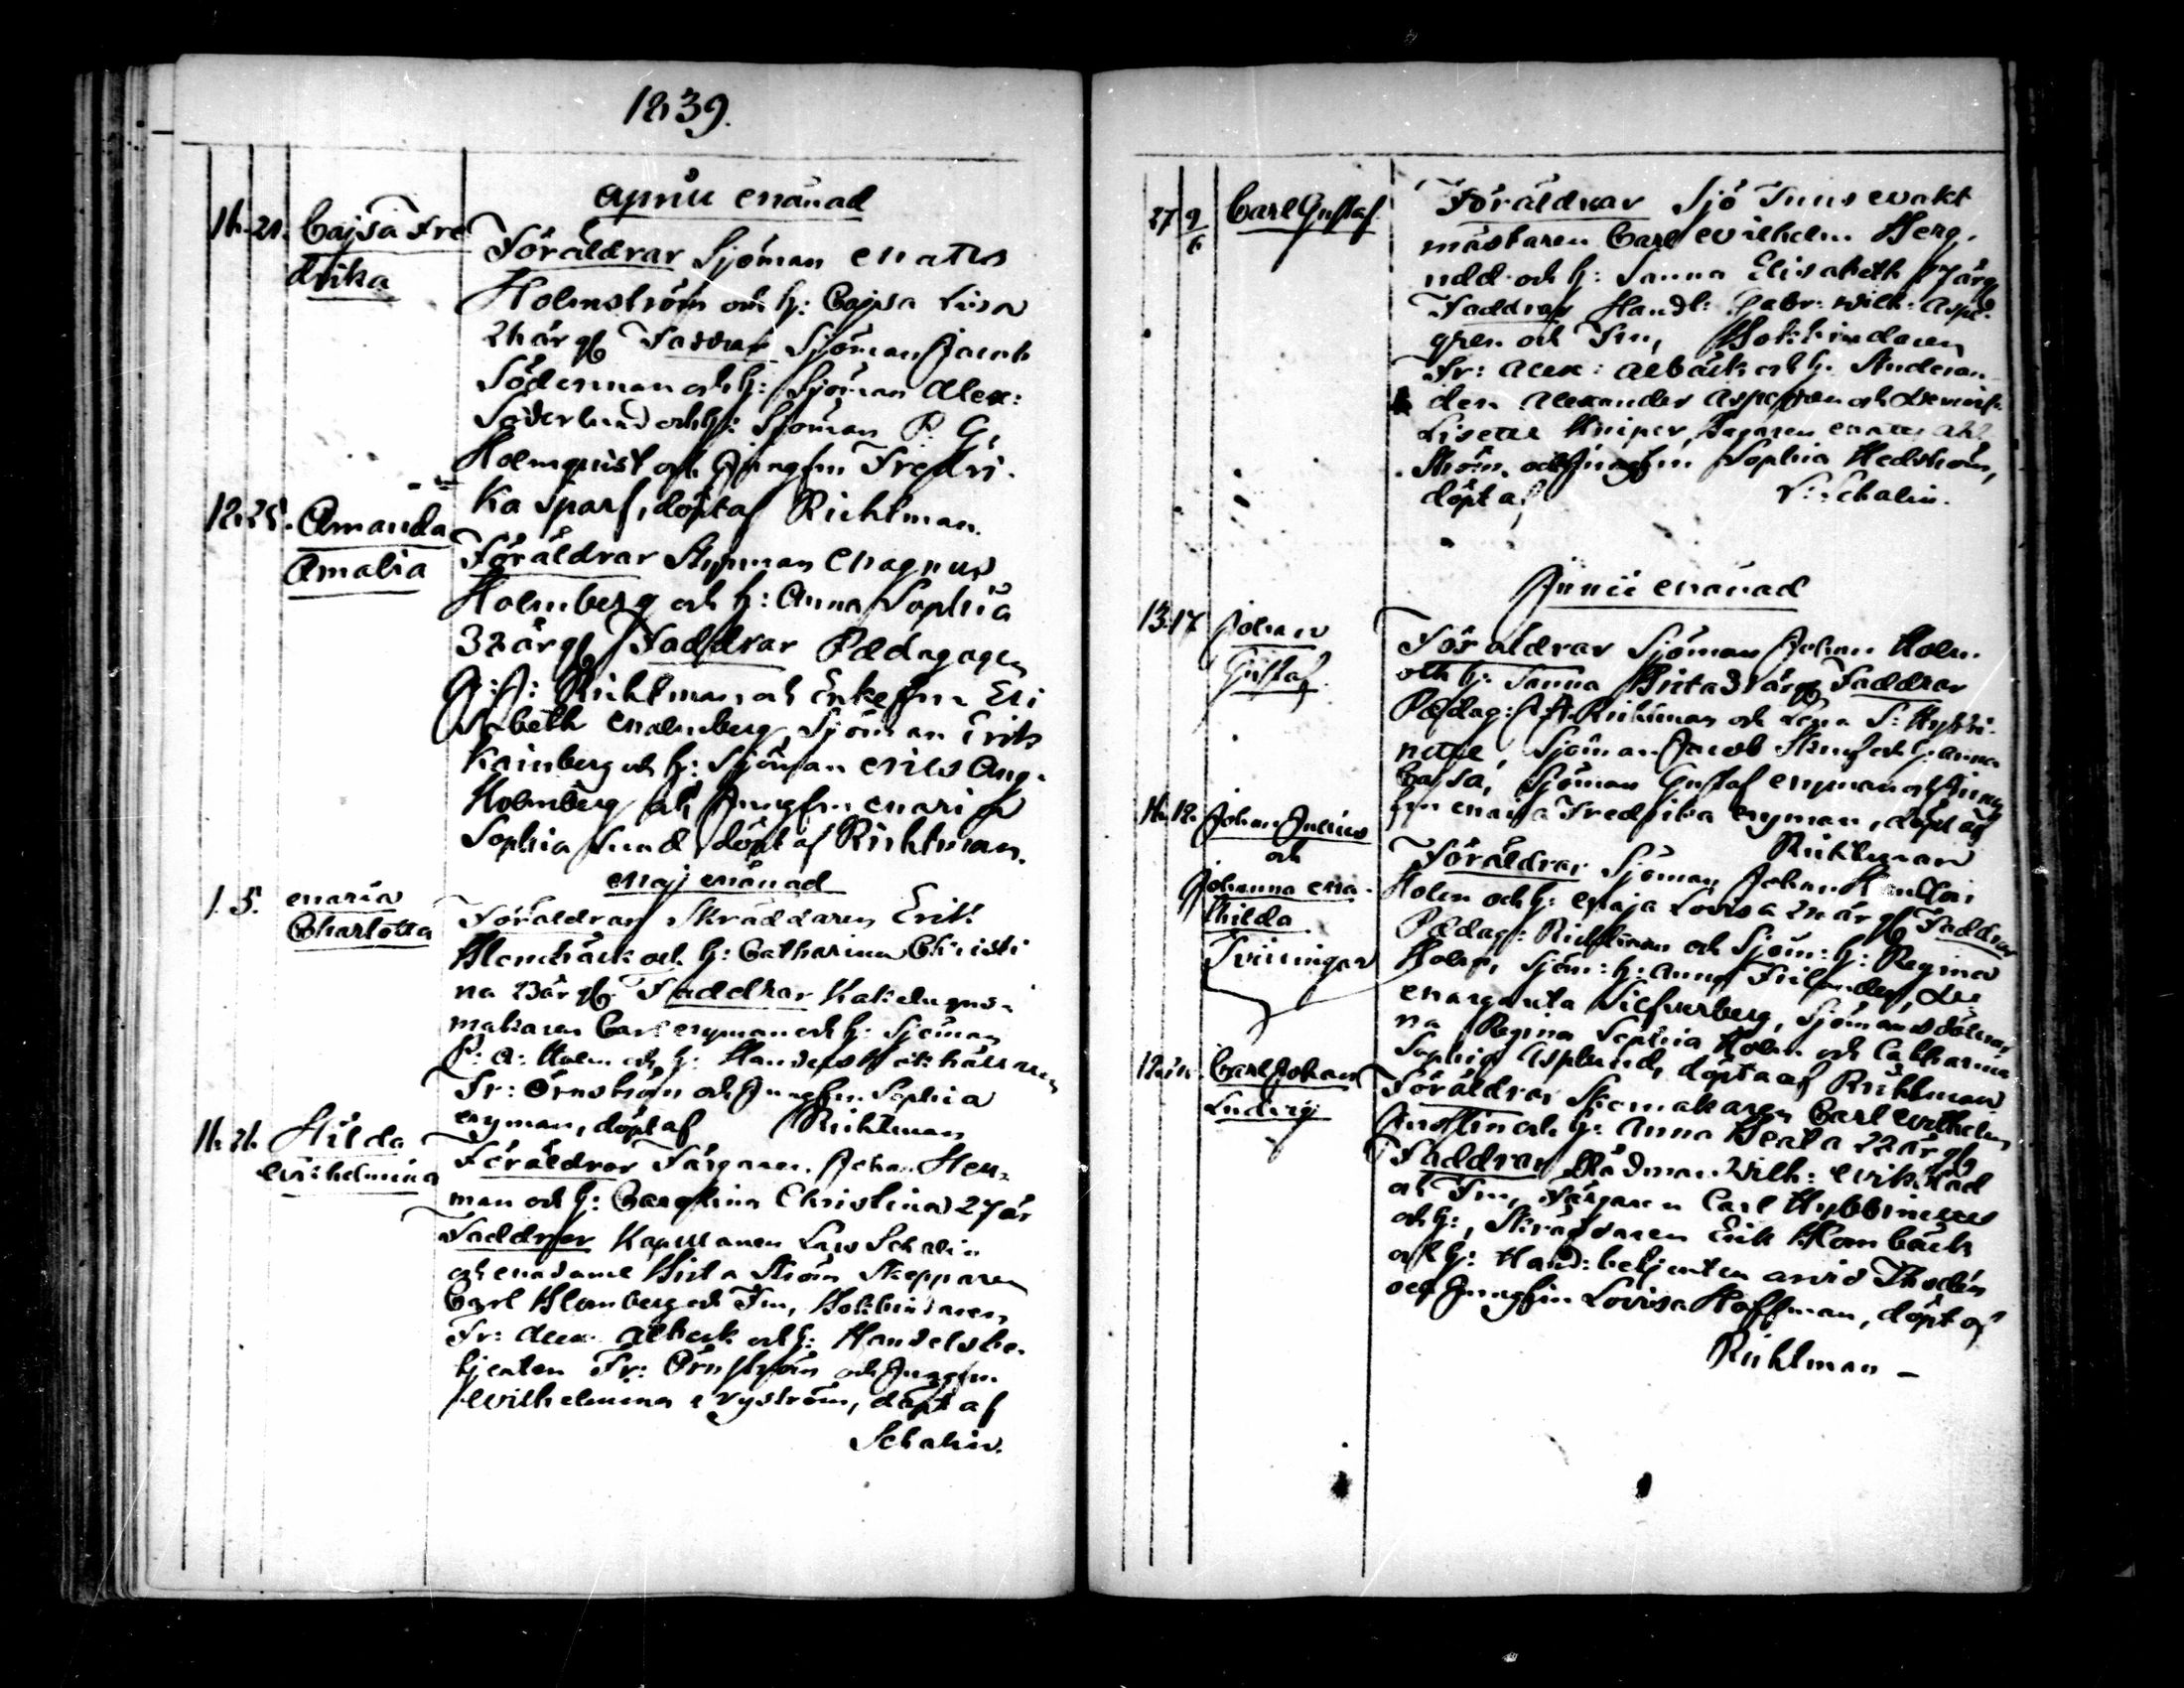 1839.
Aprill Månad
14. 21. Cajsa Fre
drika
Föräldrar Sjöman Matts
Holmström och h: Cajsa Lisa
24 år gl Faddrar Sjöman Jacob
Söderman och h: Sjöman Alex:
Söderlund och h: Sjöman P. G.
Holmquist och Jungfrun Fredri-
ka Sparf, döpt af Richtman.
18. 25. Amanda
Amalia
Föräldrar Styrman Magnus
Holmberg och h: Anna Sophia
32 år gl Faddrar Pædagogen
Richtman och Enkefru Eli
sabeth Malmberg, Sjöman Erik
Kainberg och h: Sjöman Nils Aug.
Holmberg och Jungfrun Maria
Sophia Lund döpt af Richtman.
Maj Månad
1. 5. Maria
Charlotta
Föräldrar Skräddaren Erik
Klombäck och h: Catharina Christi
na 23 år gl. Faddrar Kakelugns-
makaren Carl Nyman och h: Sjöman
P: A: Holm och h: Handelsbokhållaren
Fr: Örnström och Jungfrun Sophia
Nyman, döpt af Richtman
14. 26. Hilda
Wilhelmina
Föräldrar Färgaren Johan Hen-
man och h: Carolina Christina 27 år
Faddrar Kapellanen Lars Schalin
och Madame Brita Ström Skepparen
Carl Blomberg och Fru, Bokbindaren
Fr: Alex: Alback och h: Handelsbe-
tjenten Fr: Örnström och Jungfrun
Wilhelmina Nyström, döpt af
Schalin.
27 9/6 Carl Gustaf
Föräldrar Sjö Tulls Vakt
mästaren Carl Wilhelm Berg-
udd och h: Sanna Elisabeth 17 år gl
Faddrar Handl: Gabr: Wilh: Aspe-
gren och Fru, Bokbindaren
Fr: Alex: Albäck och h: Studeran-
den Alexander Aspegren och Demois:
Lisette Kniper, Bagaren Matts Ahl
ström och Jungfrun Sophia Hedström,
döpt af Schalin.
Junii Månad
13. 17 Johan
Gustaf
Föräldrar Sjöman Johan Holm
och h: Sanna Brita 31 år gl Faddrar
Pædag: Richtman och Lena S: Hybbi-
nette, Sjöman Jacob och h: Anna
Cajsa, Sjöman Gustaf Nyman och Jung
frun Maria Fredrika Nyman, döpt af
Richtman
14. 18. Johan Julius
och
Johanna Ma-
thilda
Tvillingar
Föräldrar Sjöman Johan
Holm och h: Maja Lovisa 24 år gl Faddrar
Pædag: Richtman och Sjöm: h: Regina
Holm, Sjöm: h: Anna
Margareta Silfverberg, Sjömansdöttrar
na Regina Sophia Holm och Catharina
Sophia Asplund, döpta af Richtman
18. 24. Carl Johan
Ludvig
Föräldrar Skomakaren Carl Wilhelm
Justlin och h: Anna Beata 22 år gl
Faddrar Rådman Wilh: Wikblad
och Fru, Färgaren Carl Hybbinette
och h:, Skräddaren Erik Klombäck
och h: Hand: betjenten Arvid Thodén
och Jungfrun Lovisa Hoffman, döpt af
Richtman -